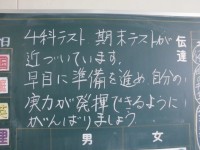 4科テスト 期末テストが
近づいています。
早目に準備を進め 自分の
実力が発揮できるように
がんばりましょう
伝達
日
男 女